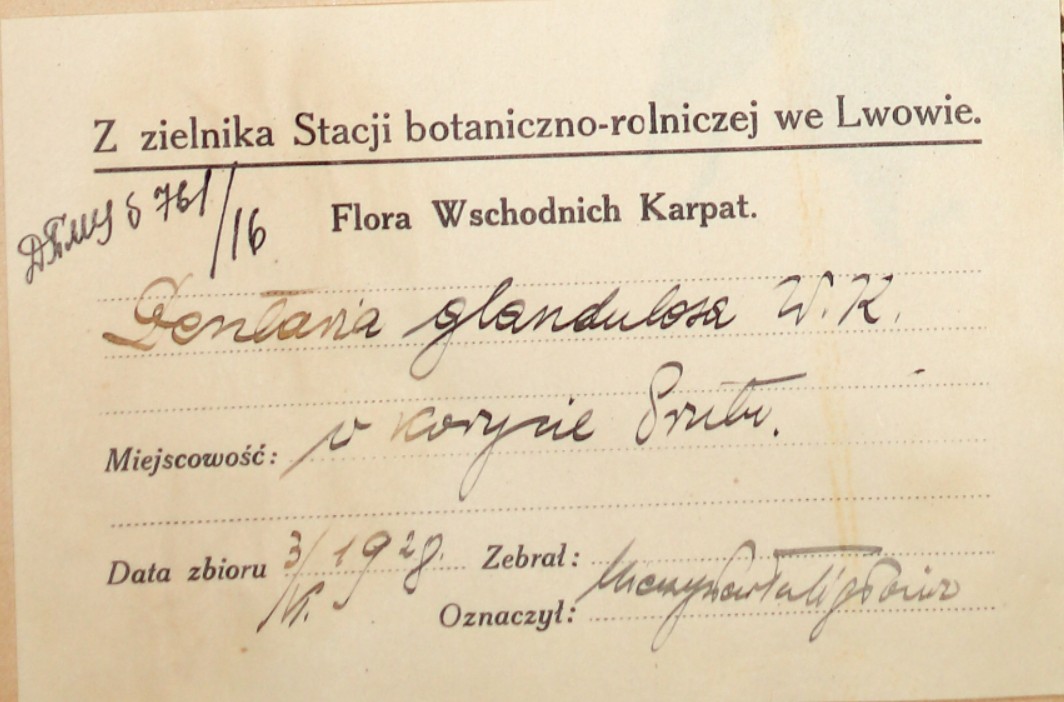 Z zielnika Stacji botaniczno-rolniczej we Lwowie.
Flora Wschodnich Karpat.
761/16
Dentaria glandulosa W. K.
Miejscowość: w korycie Prutu.
Data zbioru 3/VI. 1928. Zebrał:
Oznaczył: